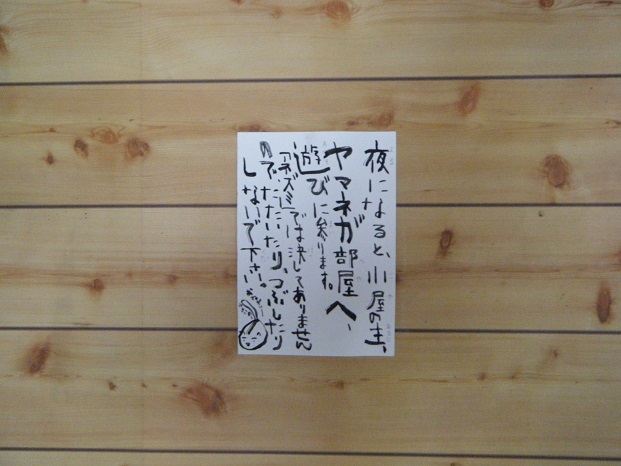 夜になると、小屋の主、
ヤマネが部屋へ、
遊びに参ります。
「ネズミ」では決してありません
のでたたいたり、つぶしたり
しないで下さい。